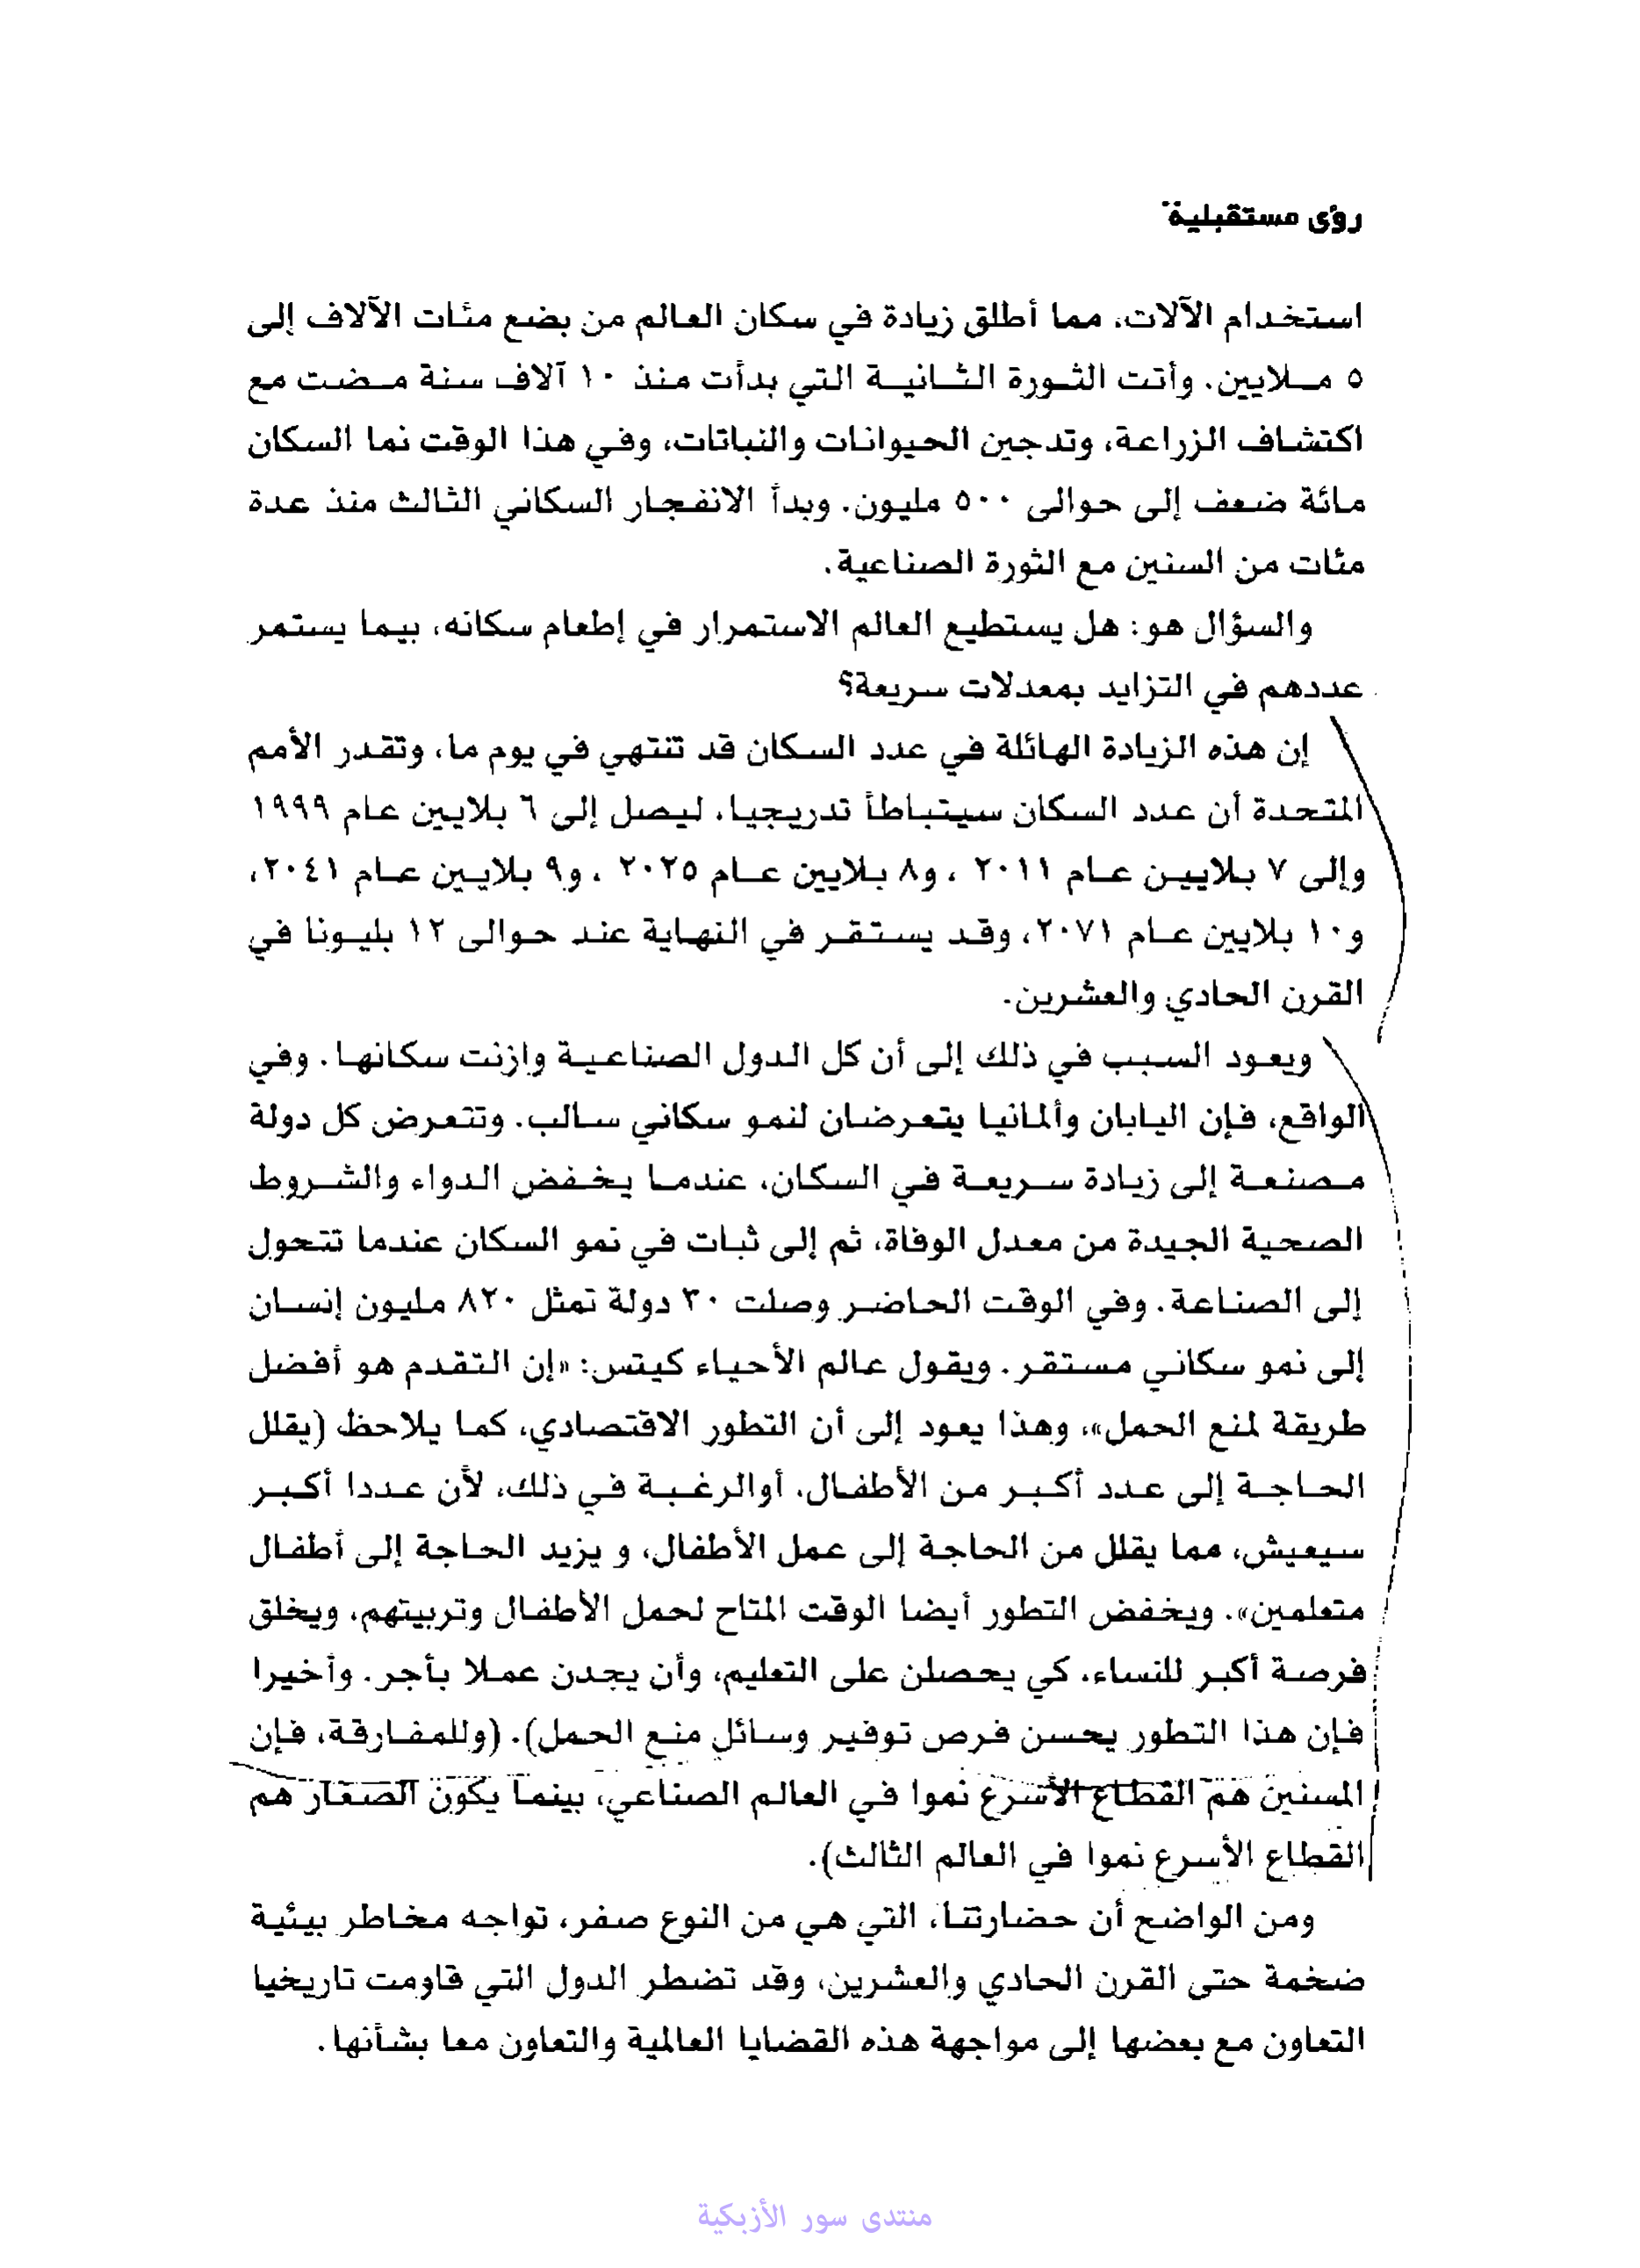 رؤى مستقبلية
استخدام الآلات، مما أطلق زيادة في سكان العالم من بضع مئات الآلاف إلى
٥ ملايين. وأتت الثورة الثانية التي بدأت منذ ١٠ آلاف سنة مضت مع
اكتشاف الزراعة، وتدجين الحيوانات والنباتات، وفي هذا الوقت نما السكان
مائة ضعف إلى حوالى ٥٠٠ مليون. وبدأ الانفجار السكاني الثالث منذ عدة
مئات من السنين مع الثورة الصناعية.
والسؤال هو: هل يستطيع العالم الاستمرار في إطعام سكانه، بيما يستمر
عددهم في التزايد بمعدلات سريعة؟
إن هذه الزيادة الهائلة في عدد السكان قد تنتهي في يوم ما، وتقدر الأمم
المتحدة أن عدد السكان سيتباطأ تدريجيا، ليصل إلى ٦ بلايين عام ١٩٩٩
وإلى ٧ بلايين عام ٢٠١١ ، و٨ بلايين عام ٢٠٢٥ ، و٩ بلايين عام ٢٠٤١،
و١٠ بلايين عام ٢٠٧١، وقد يستقر في النهاية عند حوالى ١٢ بليونا في
القرن الحادي والعشرين.
ويعود السبب في ذلك إلى أن كل الدول الصناعية وازنت سكانها. وفي
الواقع، فإن اليابان وألمانيا يتعرضان لنمو سكاني سالب. وتتعرض كل دولة
مصنعة إلى زيادة سريعة في السكان، عندما يخفض الدواء والشروط
الصحية الجيدة من معدل الوفاة، ثم إلى ثبات في نمو السكان عندما تتحول
إلى الصناعة. وفي الوقت الحاضر وصلت ٣٠ دولة تمثل ٨٢٠ مليون إنسان
إلى نمو سكاني مستقر. ويقول عالم الأحياء كيتس: «إن التقدم هو أفضل
طريقة لمنع الحمل»، وهذا يعود إلى أن التطور الاقتصادي، كما يلاحظ (يقلل
الحاجة إلى عدد أكبر من الأطفال، أوالرغبة في ذلك، لأن عددا أكبر
سيعيش، مما يقلل من الحاجة إلى عمل الأطفال، و يزيد الحاجة إلى أطفال
متعلمين». ويخفض التطور أيضا الوقت المتاح لحمل الأطفال وتربيتهم، ويخلق
فرصة أكبر للنساء، كي يحصلن على التعليم، وأن يجدن عملا بأجر. وأخيرا
فإن هذا التطور يحسن فرص توفير وسائل منع الحمل). (وللمفارقة، فإن
المسنين هم القطاع الأسرع نموا في العالم الصناعي، بينما يكون الصغار هم
القطاع الأسرع نموا في العالم الثالث).
ومن الواضح أن حضارتنا، التي هي من النوع صفر، تواجه مخاطر بيئية
ضخمة حتى القرن الحادي والعشرين، وقد تضطر الدول التي قاومت تاريخيا
التعاون مع بعضها إلى مواجهة هذه القضايا العالمية والتعاون معا بشأنها.
منتدى سور الأزبكية